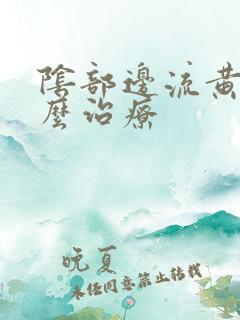 陰部邊流黃
麼治療
晚夏
未经同意禁止转载